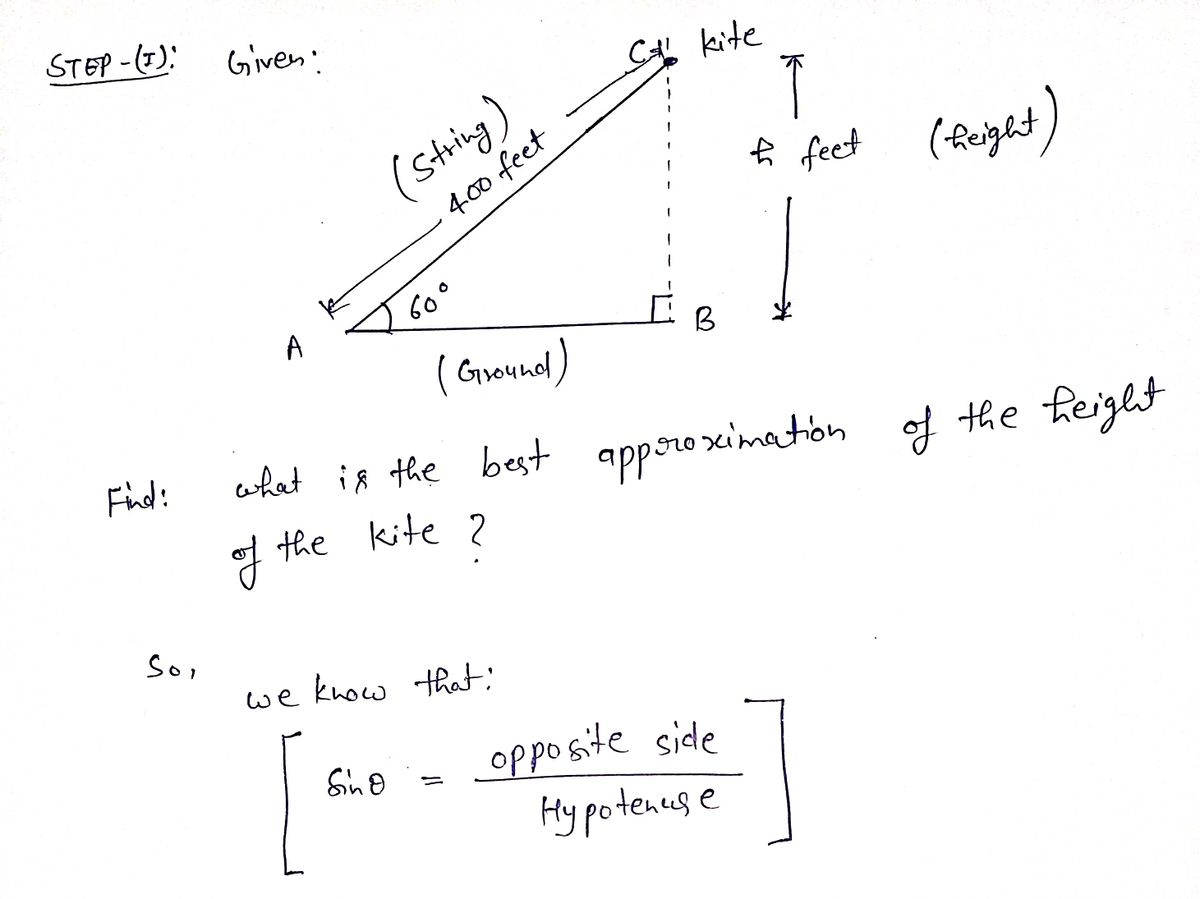 STEP-(I): Given:
C kite
(String)
400 feet
h feet (height)
60°
A
B
(Ground)
Find: what is the best approximation of the height
of the kite ?
So,
we know that:
[ Sin θ = opposite side
Hypotenuse ]